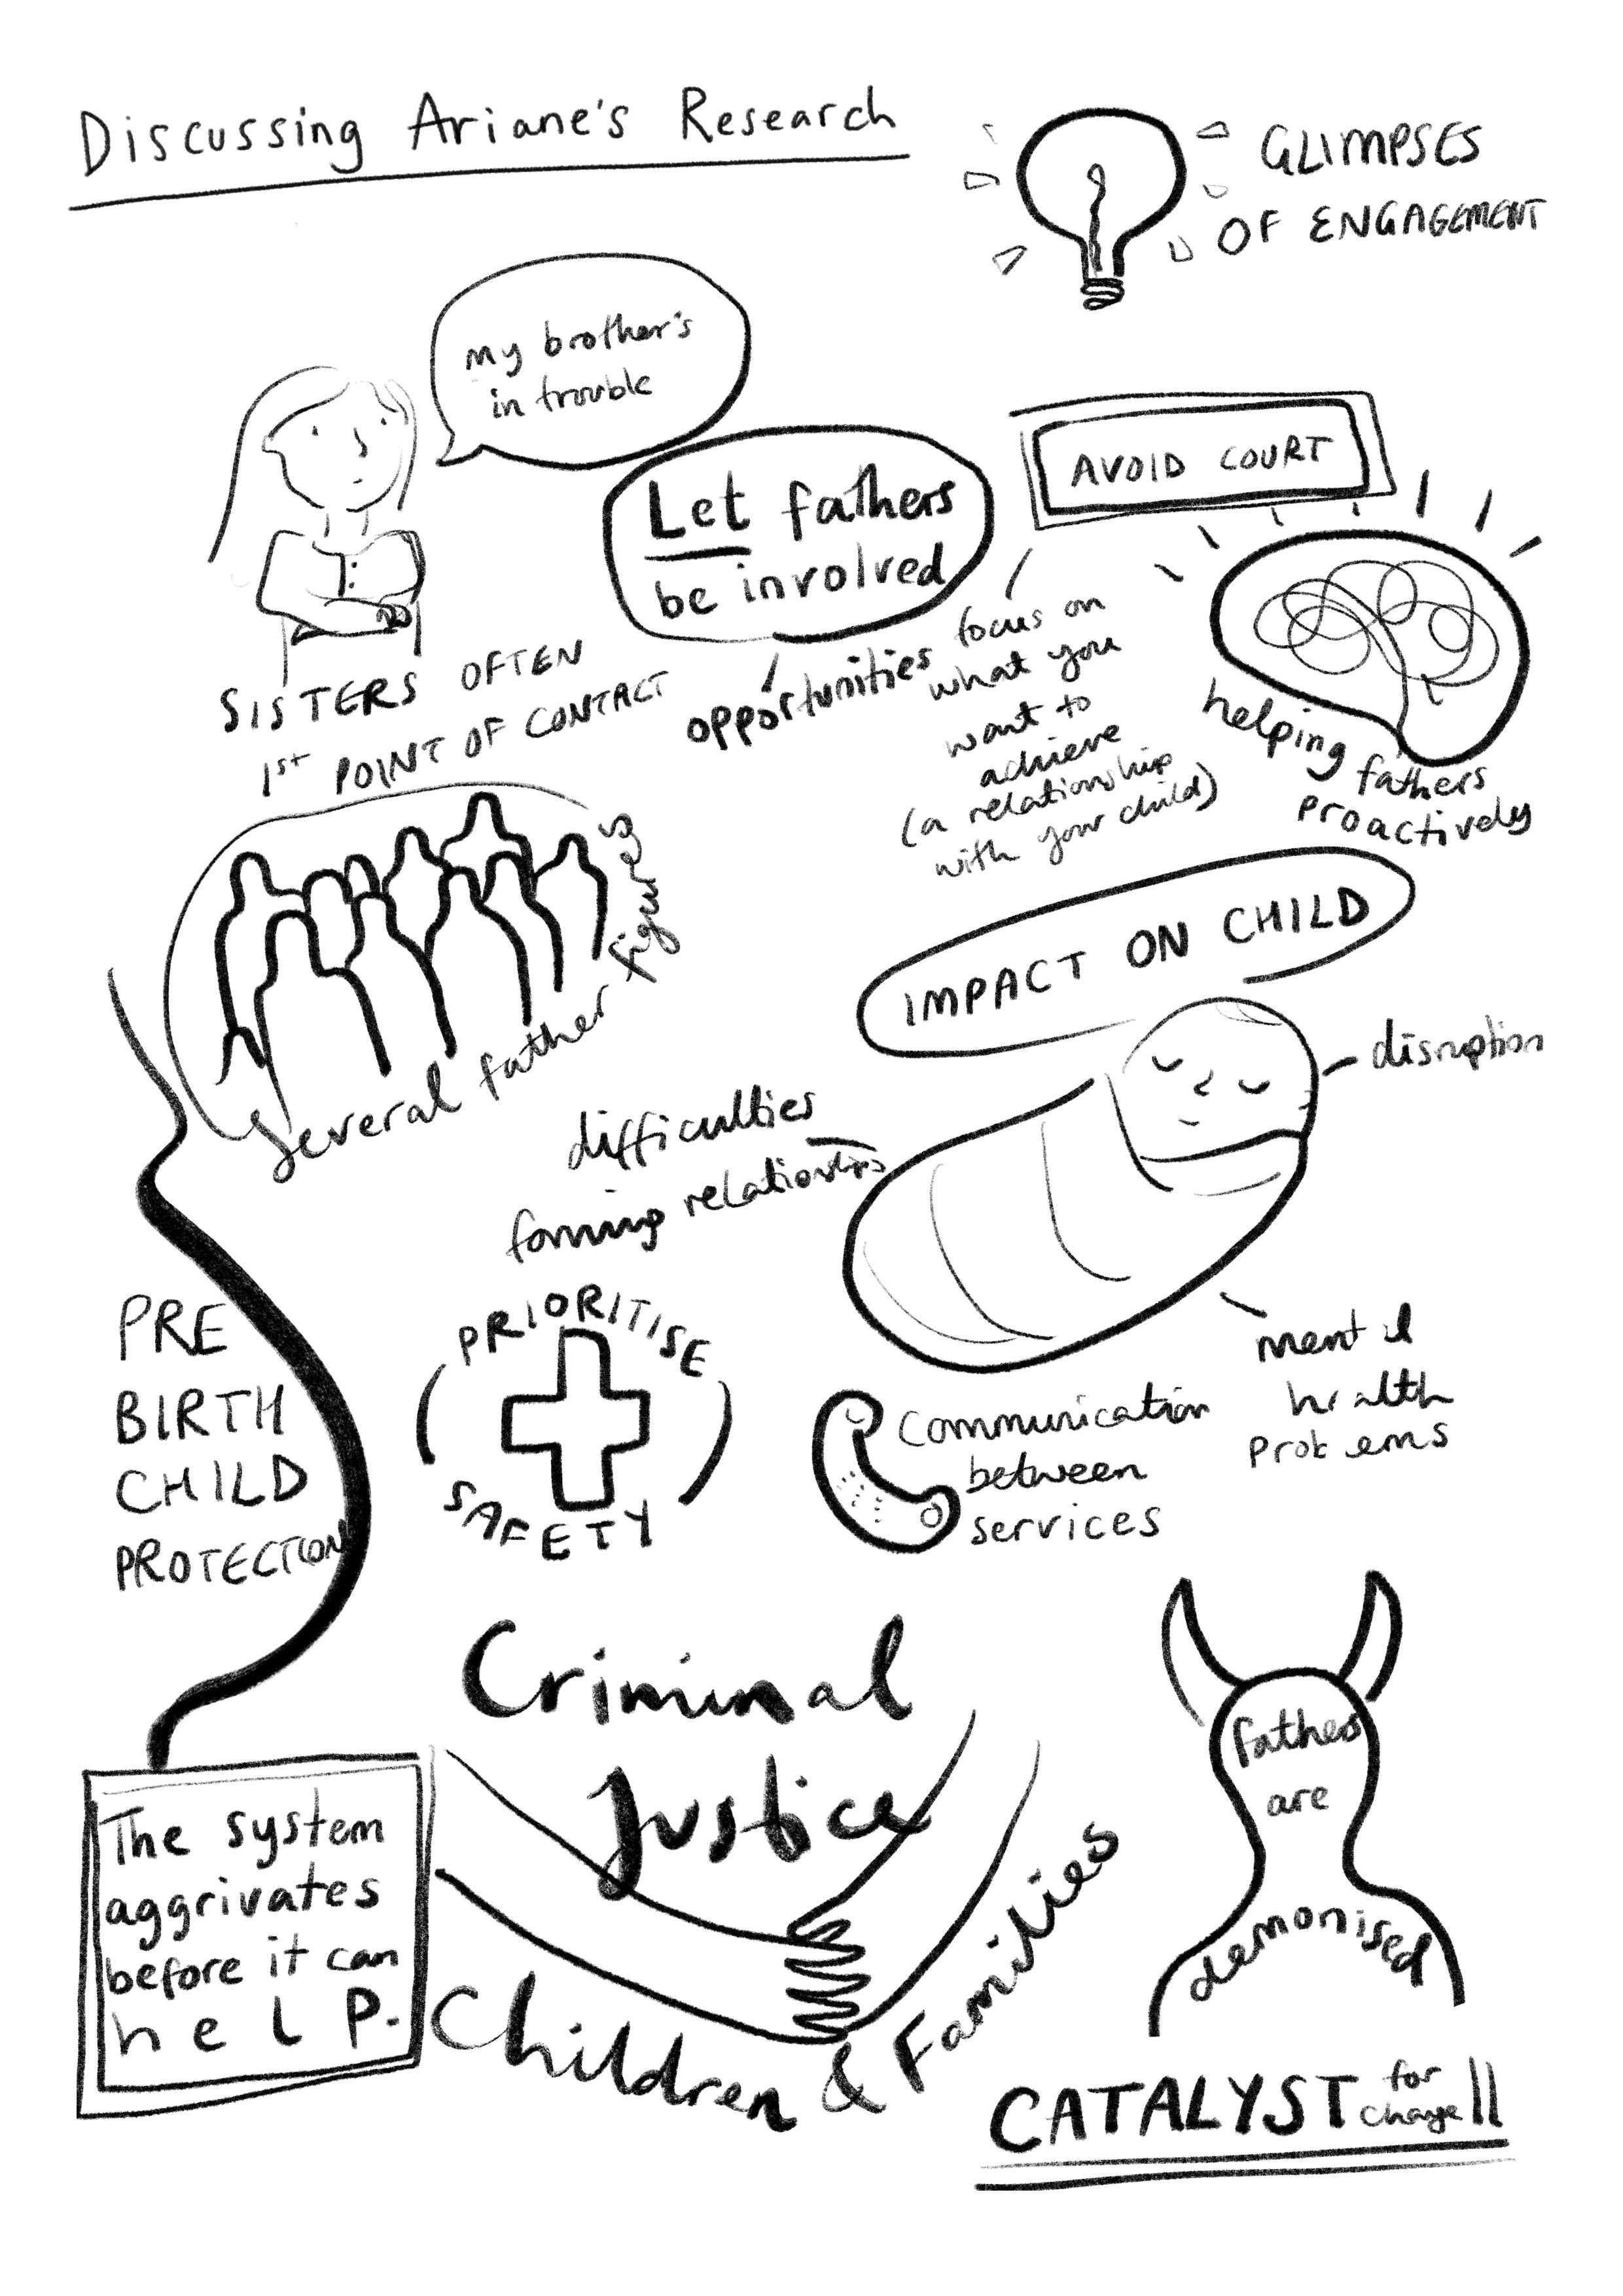 Discussing Ariane's Research
GLIMPSES
OF ENGAGEMENT
my brother's
in trouble
Let fathers
be involved
AVOID COURT
SISTERS OFTEN
1st POINT OF CONTACT
opportunities
focus on
what you
want to
achieve
(a relationship
with your child)
helping fathers
proactively
Several father figures
IMPACT ON CHILD
disruption
difficulties
forming relationships
mental
health
problems
PRE
BIRTH
CHILD
PROTECTION
PRIORITISE
SAFETY
Communication
between
services
Criminal
Justice
Children & Families
The system
aggrivates
before it can
heLP.
fathers
are
demonised
CATALYST for
change